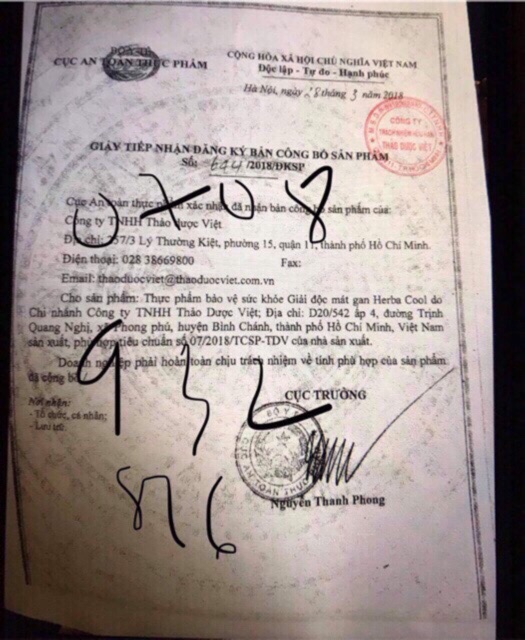 BỘ Y TẾ
CỤC AN TOÀN THỰC PHẨM
CỘNG HÒA XÃ HỘI CHỦ NGHĨA VIỆT NAM
Độc lập - Tự do - Hạnh phúc
Hà Nội, ngày 28 tháng 3 năm 2018
CÔNG TY
TRÁCH NHIỆM HỮU HẠN
THẢO DƯỢC VIỆT
GIẤY TIẾP NHẬN ĐĂNG KÝ BẢN CÔNG BỐ SẢN PHẨM
Số: /2018/ĐKSP
0708
Cục An toàn thực phẩm xác nhận đã nhận bản công bố sản phẩm của:
Công ty TNHH Thảo Dược Việt
Địa chỉ: 257/3 Lý Thường Kiệt, phường 15, quận 11, thành phố Hồ Chí Minh.
Điện thoại: 028 38669800 Fax:
Email: thaoduocviet@thaoduocviet.com.vn
Cho sản phẩm: Thực phẩm bảo vệ sức khỏe Giải độc mát gan Herba Cool do
Chi nhánh Công ty TNHH Thảo Dược Việt; Địa chỉ: D20/542 ấp 4, đường Trịnh
Quang Nghị, xã Phong phú, huyện Bình Chánh, thành phố Hồ Chí Minh, Việt Nam
sản xuất, phù hợp tiêu chuẩn số 07/2018/TCSP-TDV của nhà sản xuất.
Doanh nghiệp phải hoàn toàn chịu trách nhiệm về tính phù hợp của sản phẩm
đã công bố./.
932
CỤC TRƯỞNG
Nơi nhận:
- Tổ chức, cá nhân;
- Lưu trữ.
BỘ Y TẾ
CỤC AN TOÀN THỰC
876
Nguyễn Thanh Phong